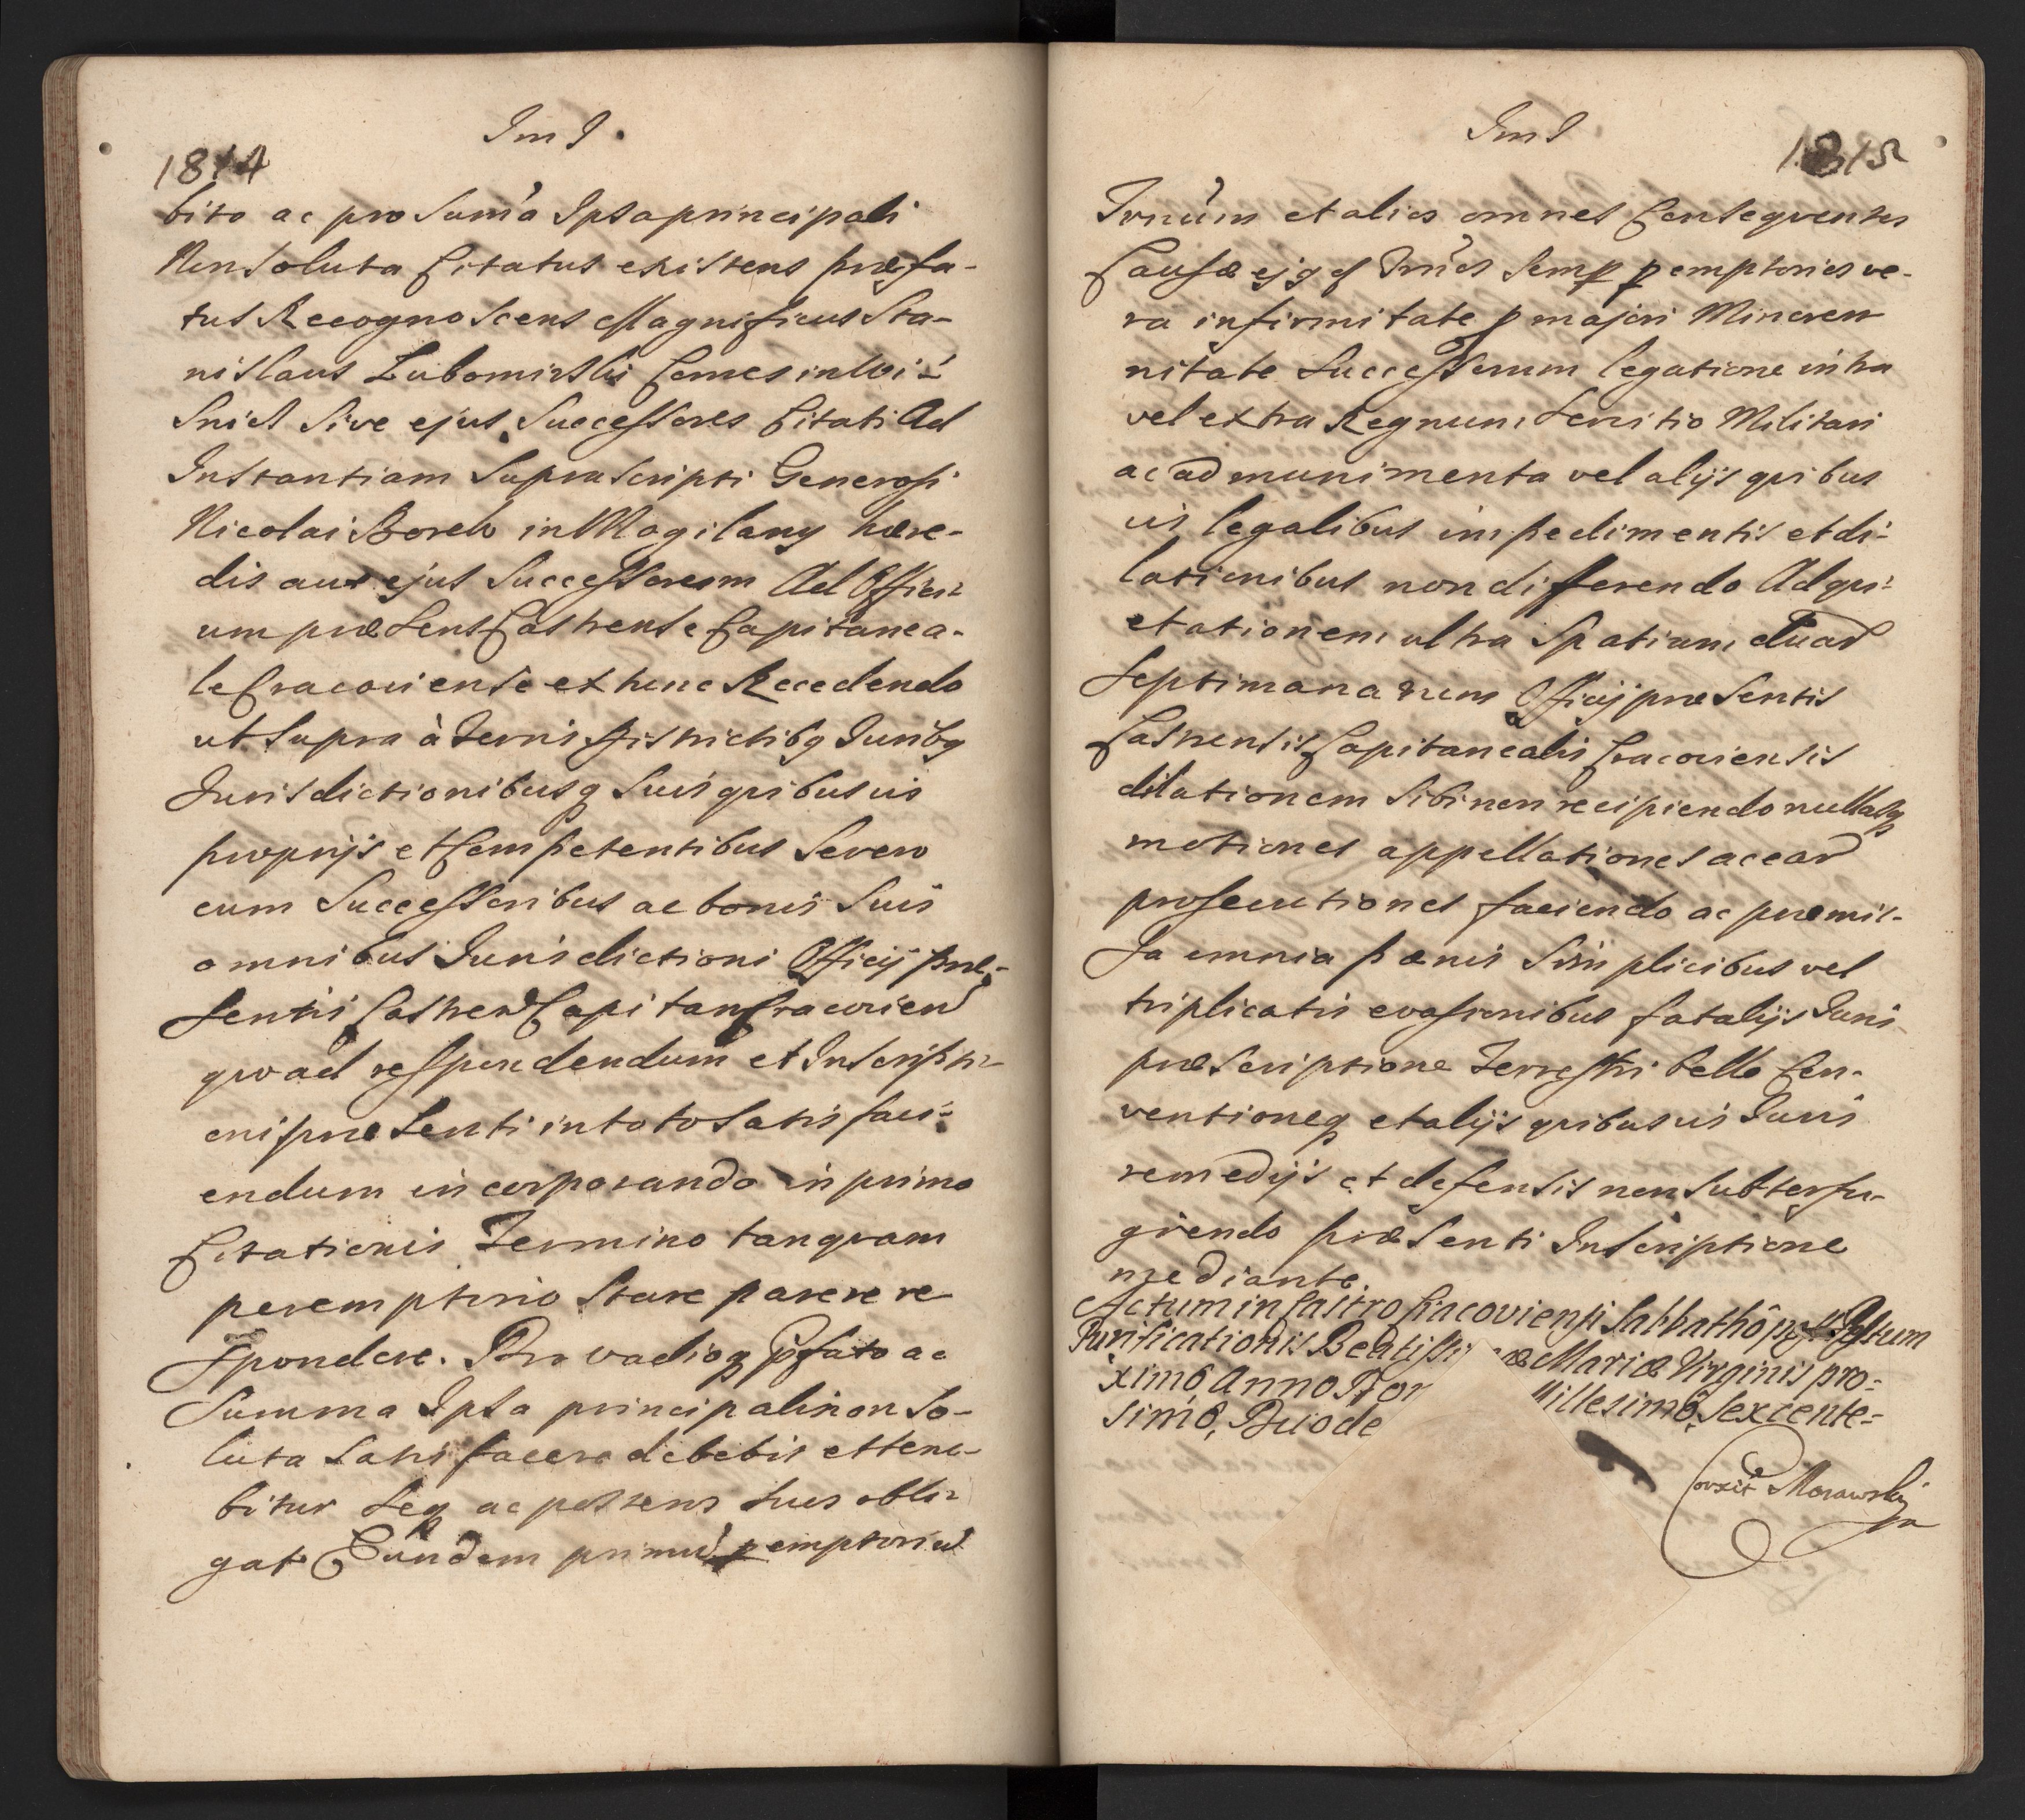 Im I.
1814
bito ac pro Sum̃a Ipsa principali
Non Soluta Citatus existens præfa-
tus Recognoscens Magnificus Sta-
nislaus Lubomirski Comes in Wi-
snicz Sive ejus Successores Citati Ad
Instantiam Suprascripti Generosi
Nicolai Borek in Mogilany hære-
dis aut ejus Successorum Ad Offici-
um præsens Castrense Capitanea-
le Cracoviense ex tunc Recedendo
ut Supra à Terris Districtibq Juribq
Jurisdictionibusq Suis quibusvis
proprijs et Competentibus Se vero
cum Successoribus ac bonis Suis
omnibus Jurisdictioni Officij præ-
sentis Castren Capitan Cracovien
quoad respondendum et Inscripti-
oni præsenti in toto Satisfaci-
endum incorporando in primo
Citationis Termino tanquam
peremptorio Stare parere re-
spondere. Pro vadioq p̃fato ac
Summa Ipsa principali non So-
luta Satisfacere debebit et tene-
bitur Seq ac posteros Suos obli-
gat Eundem primũ pemptoriũ
Im I
1815
Trnũm et alios omnes Consequentes
Causæ ejq et Trnõs Semp pemptorios ve-
ra infirmitate p majori Minoren
nitate Successorum legatione intra
vel extra Regnum Servitio Militari
ac ad munimenta vel alijs quibus
vis legalibus impedimentis et di-
lationibus non differendo Ad qui-
etationem ultra Spatium duar
Septimanarum Officij præsentis
Castrensis Capitanealis Cracoviensis
dilationem Sibi non recipiendo nullasq
motiones appellationes ac ear
prosecutiones faciendo ac præmis-
sa omnia pænis Simplicibus vel
triplicatis evasionibus fatalijs Juris
præscriptione Terrestri bello Con-
ventioneq et alijs quibusvis Juris
remedijs et defensis non Subterfu-
giendo præsenti Inscriptione
mediante.
Actum in Castro Cracoviensi Sabbathô post Festum
Purificationis Beatissimæ Mariæ Virginis pro-
ximô, Anno Do Millesimô, Sexcente-
simô, Duode
Corexit Morawski